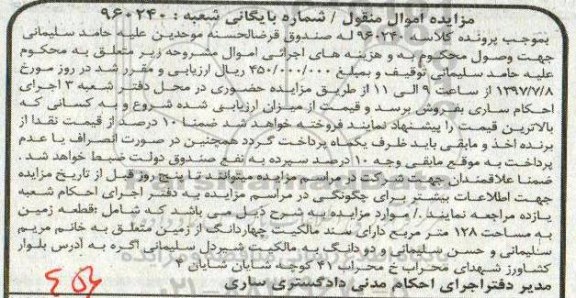 مزایده اموال منقول / شماره بایگانی شعبه : ۹۶۰۲۴۰
بموجب پرونده کلاسه ۹۶۰۲۴۰ له صندوق قرض‌الحسنه موحدین علیه حامد سلیمانی
جهت وصول محکوم به و هزینه های اجرائی اموال مشروحه زیر متعلق به محکوم
علیه حامد سلیمانی توقیف و بمبلغ ۴۵۰/۰۰۰/۰۰۰ ریال ارزیابی و مقرر شد در روز مورخ
۱۳۹۷/۷/۸ از ساعت ۹ الی ۱۱ از طریق مزایده حضوری در محل دفتر شعبه ۳ اجرای
احکام ساری بفروش برسد و قیمت از میزان ارزیابی شده شروع و به کسانی که
بالاترین قیمت را پیشنهاد نمایند فروخته خواهد شد ضمنا ۱۰ درصد از قیمت نقدا از
برنده اخذ و مابقی باید ظرف یکماه پرداخت گردد همچنین در صورت انصراف یا عدم
پرداخت به موقع مابقی وجه ۱۰ درصد سپرده به نفع صندوق دولت ضبط خواهد شد .
ضمنا علاقمندان جهت شرکت در مراسم مزایده میتوانند تا پنج روز قبل از تاریخ مزایده
جهت اطلاعات بیشتر برای چگونگی در مراسم مزایده به دفتر اجرای احکام شعبه
یازده مراجعه نمایند ./ موارد مزایده به شرح ذیل می باشد که شامل :قطعه زمین
به مساحت ۱۲۸ متر مربع دارای سند مالکیت چهاردانگ از زمین متعلق به خانم مریم
سلیمانی و حسن سلیمانی و دو دانگ به مالکیت شیردل سلیمانی اگره به آدرس بلوار
کشاورز شهدای محراب خ محراب ۴۱ کوچه شایان شایان ۴
مدیر دفتراجرای احکام مدنی دادگستری ساری